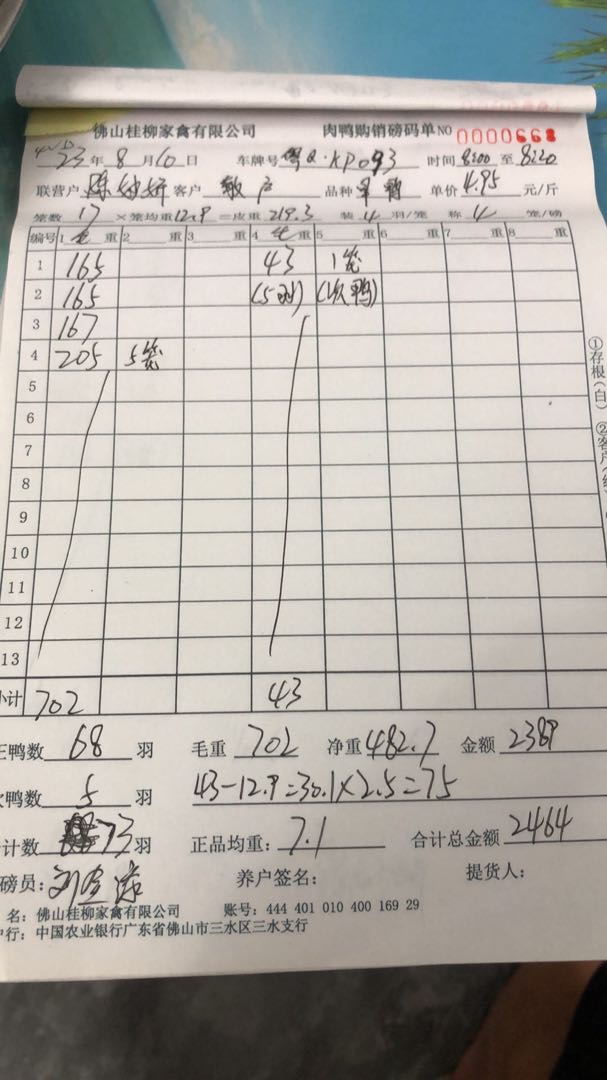 佛山桂柳家禽有限公司 肉鸭购销磅码单NO 0000668
23年8月10日 车牌号 XP093 时间8:00至8:20
联营户 陈 客户 散户 品种 单价4.95元/斤
笼数17×笼均重12.9=皮重219.3 装4羽/笼 称4笼/磅
编号 1毛重 2重 3重 4毛重 5重 6重 7重 8重
1 165 43 1笼
2 165 (5羽) (次鸭)
3 167
4 205 5笼
5
6
7
8
9
10
11
12
13
小计 702 43
正鸭数68羽 毛重702 净重482.7 金额2389
次鸭数5羽 43-12.9=30.1×2.5=75
合计数73羽 正品均重:7.1 合计总金额2464
磅员: 养户签名: 提货人:
名:佛山桂柳家禽有限公司 账号:444 401 010 400 169 29
户行:中国农业银行广东省佛山市三水区三水支行
①存根(白)②客户(红